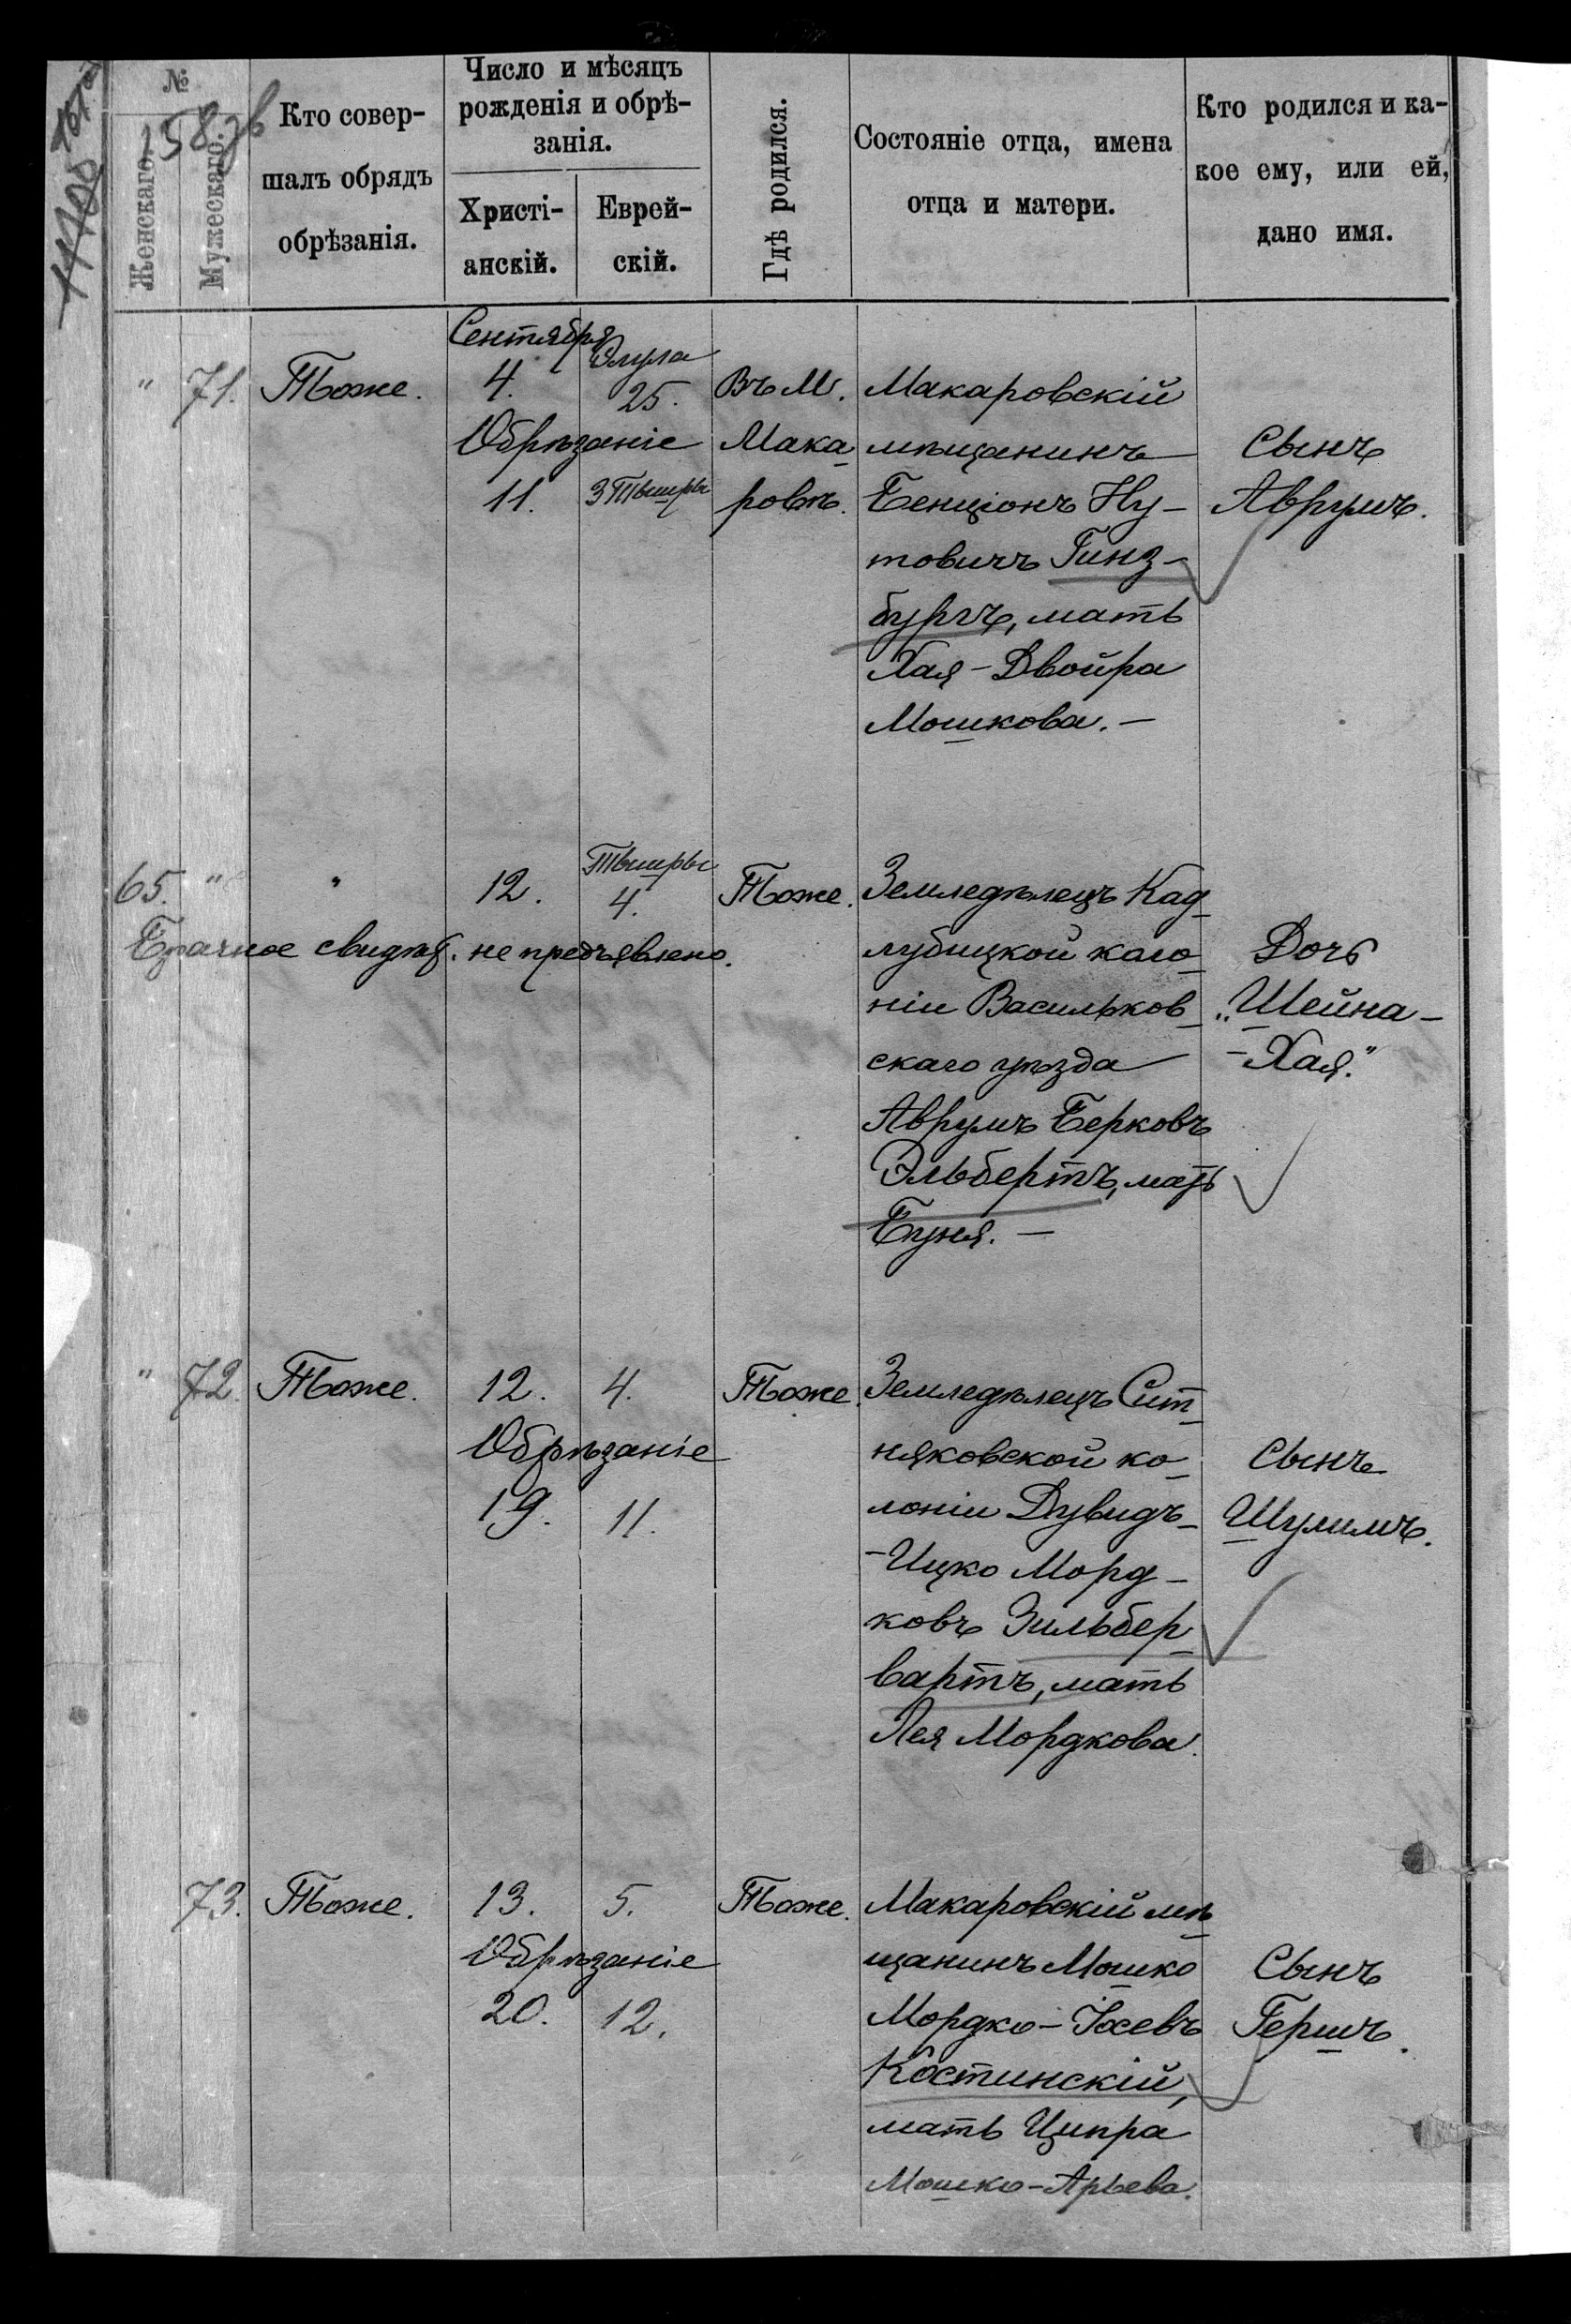 №
Женскаго.
Мужескаго.
158 зв
Кто совер-
шалъ обрядъ
обрѣзанія.
Число и мѣсяцъ
рожденія и обрѣ-
занія.
Христі-
анскій.
Еврей-
скій.
Гдѣ родился.
Состояніе отца, имена
отца и матери.
Кто родился и ка-
кое ему, или ей,
дано имя.
" 71. Тоже.
Сентября
4.
Элула
25.
Обрѣзаніе
11. 3 Тышры
Въ М.
Мака-
ровѣ.
Макаровскій
мѣщанинъ
Бенціонъ Ну-
товичъ Гинз-
бургъ, мать
Хая-Двойра
Мошкова. —
Сынъ
Аврумъ.
65. " "
12.
Тышры
4.
Тоже.
Брачное свидѣт. не предъявлено.
Земледѣлецъ Кад-
лубицкой коло-
ніи Васильков-
скаго уѣзда —
Аврумъ Берковъ
Эльбертъ, мать
Буня. —
Дочь
"Шейна-
-Хая."
" 72. Тоже.
12. 4.
Обрѣзаніе
19. 11.
Тоже.
Земледѣлецъ Сит-
няковской ко-
лоніи Дувидъ-
-Ицко Морд-
ковъ Зильбер-
вартъ, мать
Лея Мордкова.
Сынъ
Шулимъ.
73. Тоже.
13. 5.
Обрѣзаніе
20. 12.
Тоже.
Макаровскій мѣ-
щанинъ Мошко
Мордко-Іосевъ
Костинскій,
мать Ципра
Мошко-Арьева.
Сынъ
Гершъ.